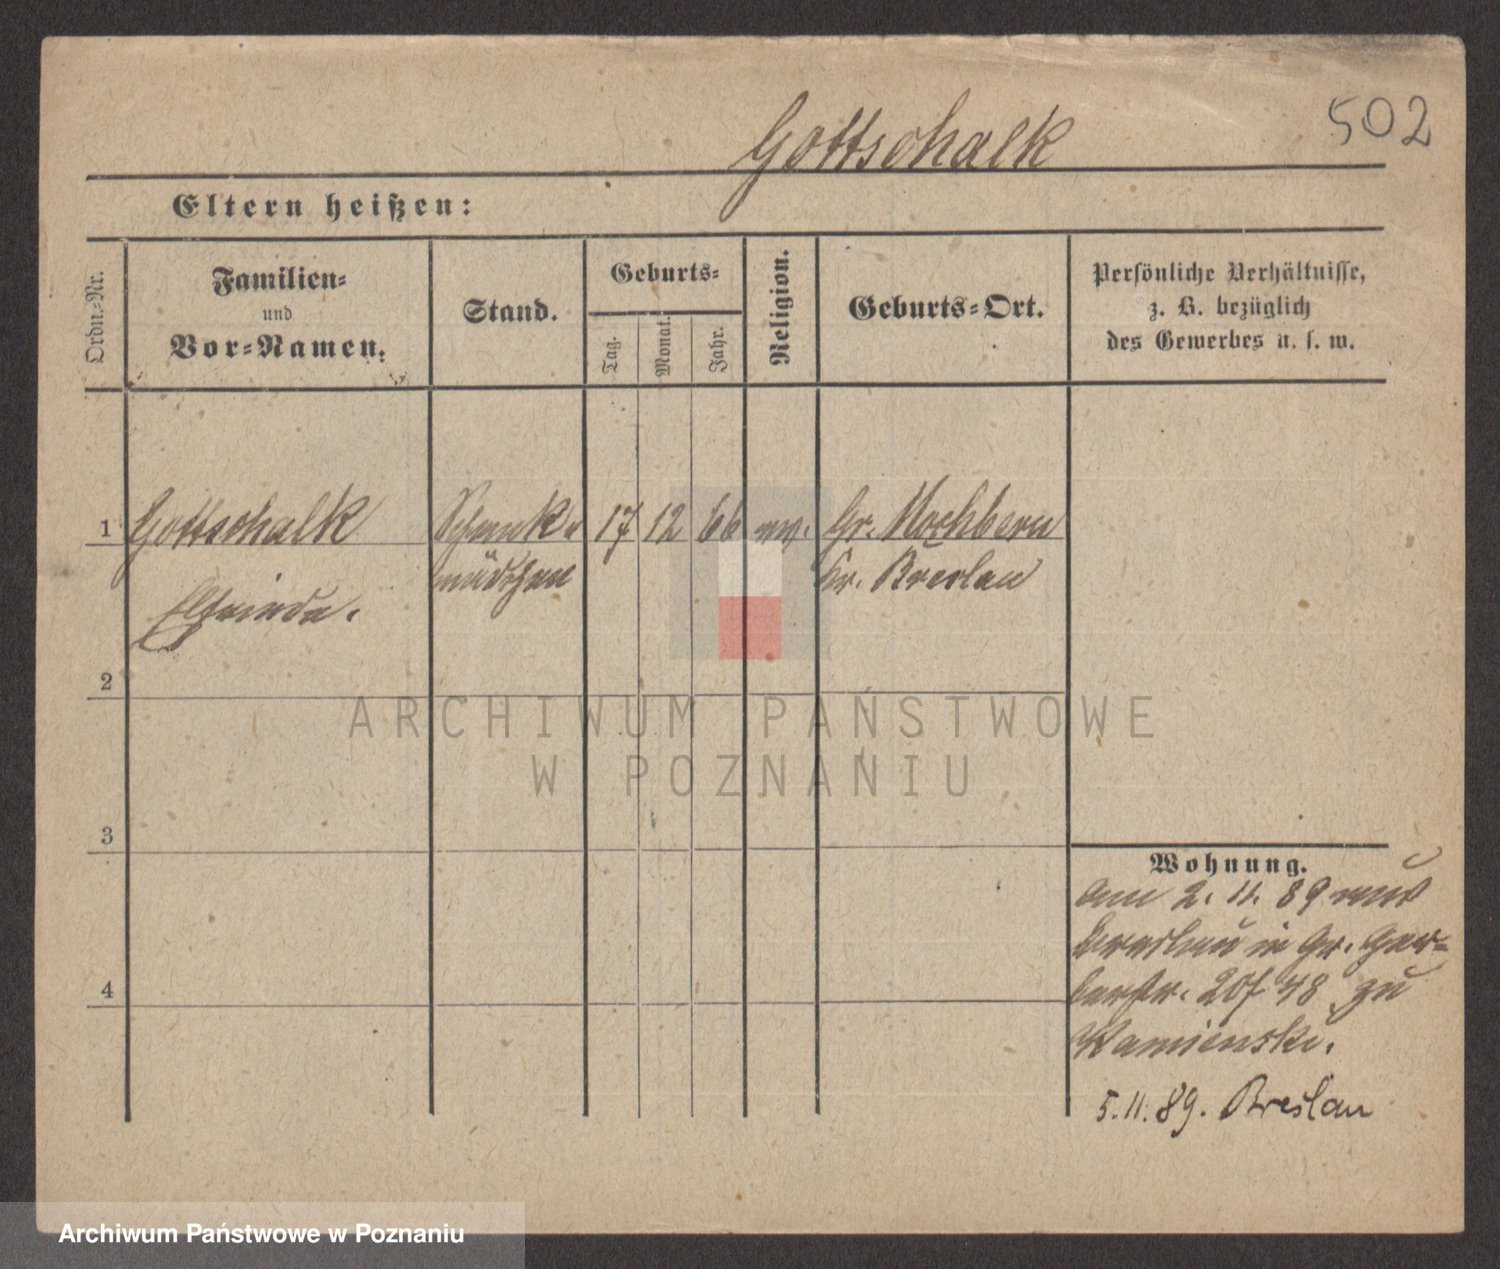 502
Gottschalk
Eltern heißen:
Ordn.-Nr.
Familien-
und
Vor-Namen.
Stand.
Geburts-
Tag.
Monat.
Jahr.
Religion.
Geburts-Ort.
Persönliche Verhältnisse,
z. B. bezüglich
des Gewerbes u. s. w.
1 Gottschalk Schenk- 17 12 66 ev. Gr. Mochbern
Elfriede. mädchen Kr. Breslau
2
3
4
Wohnung.
Am 2. 11. 89 aus
Breslau in Gr. Ger-
berstr. 48 zu
Kamienski.
5. 11. 89. Breslau
ARCHIWUM PAŃSTWOWE
W POZNANIU
Archiwum Państwowe w Poznaniu